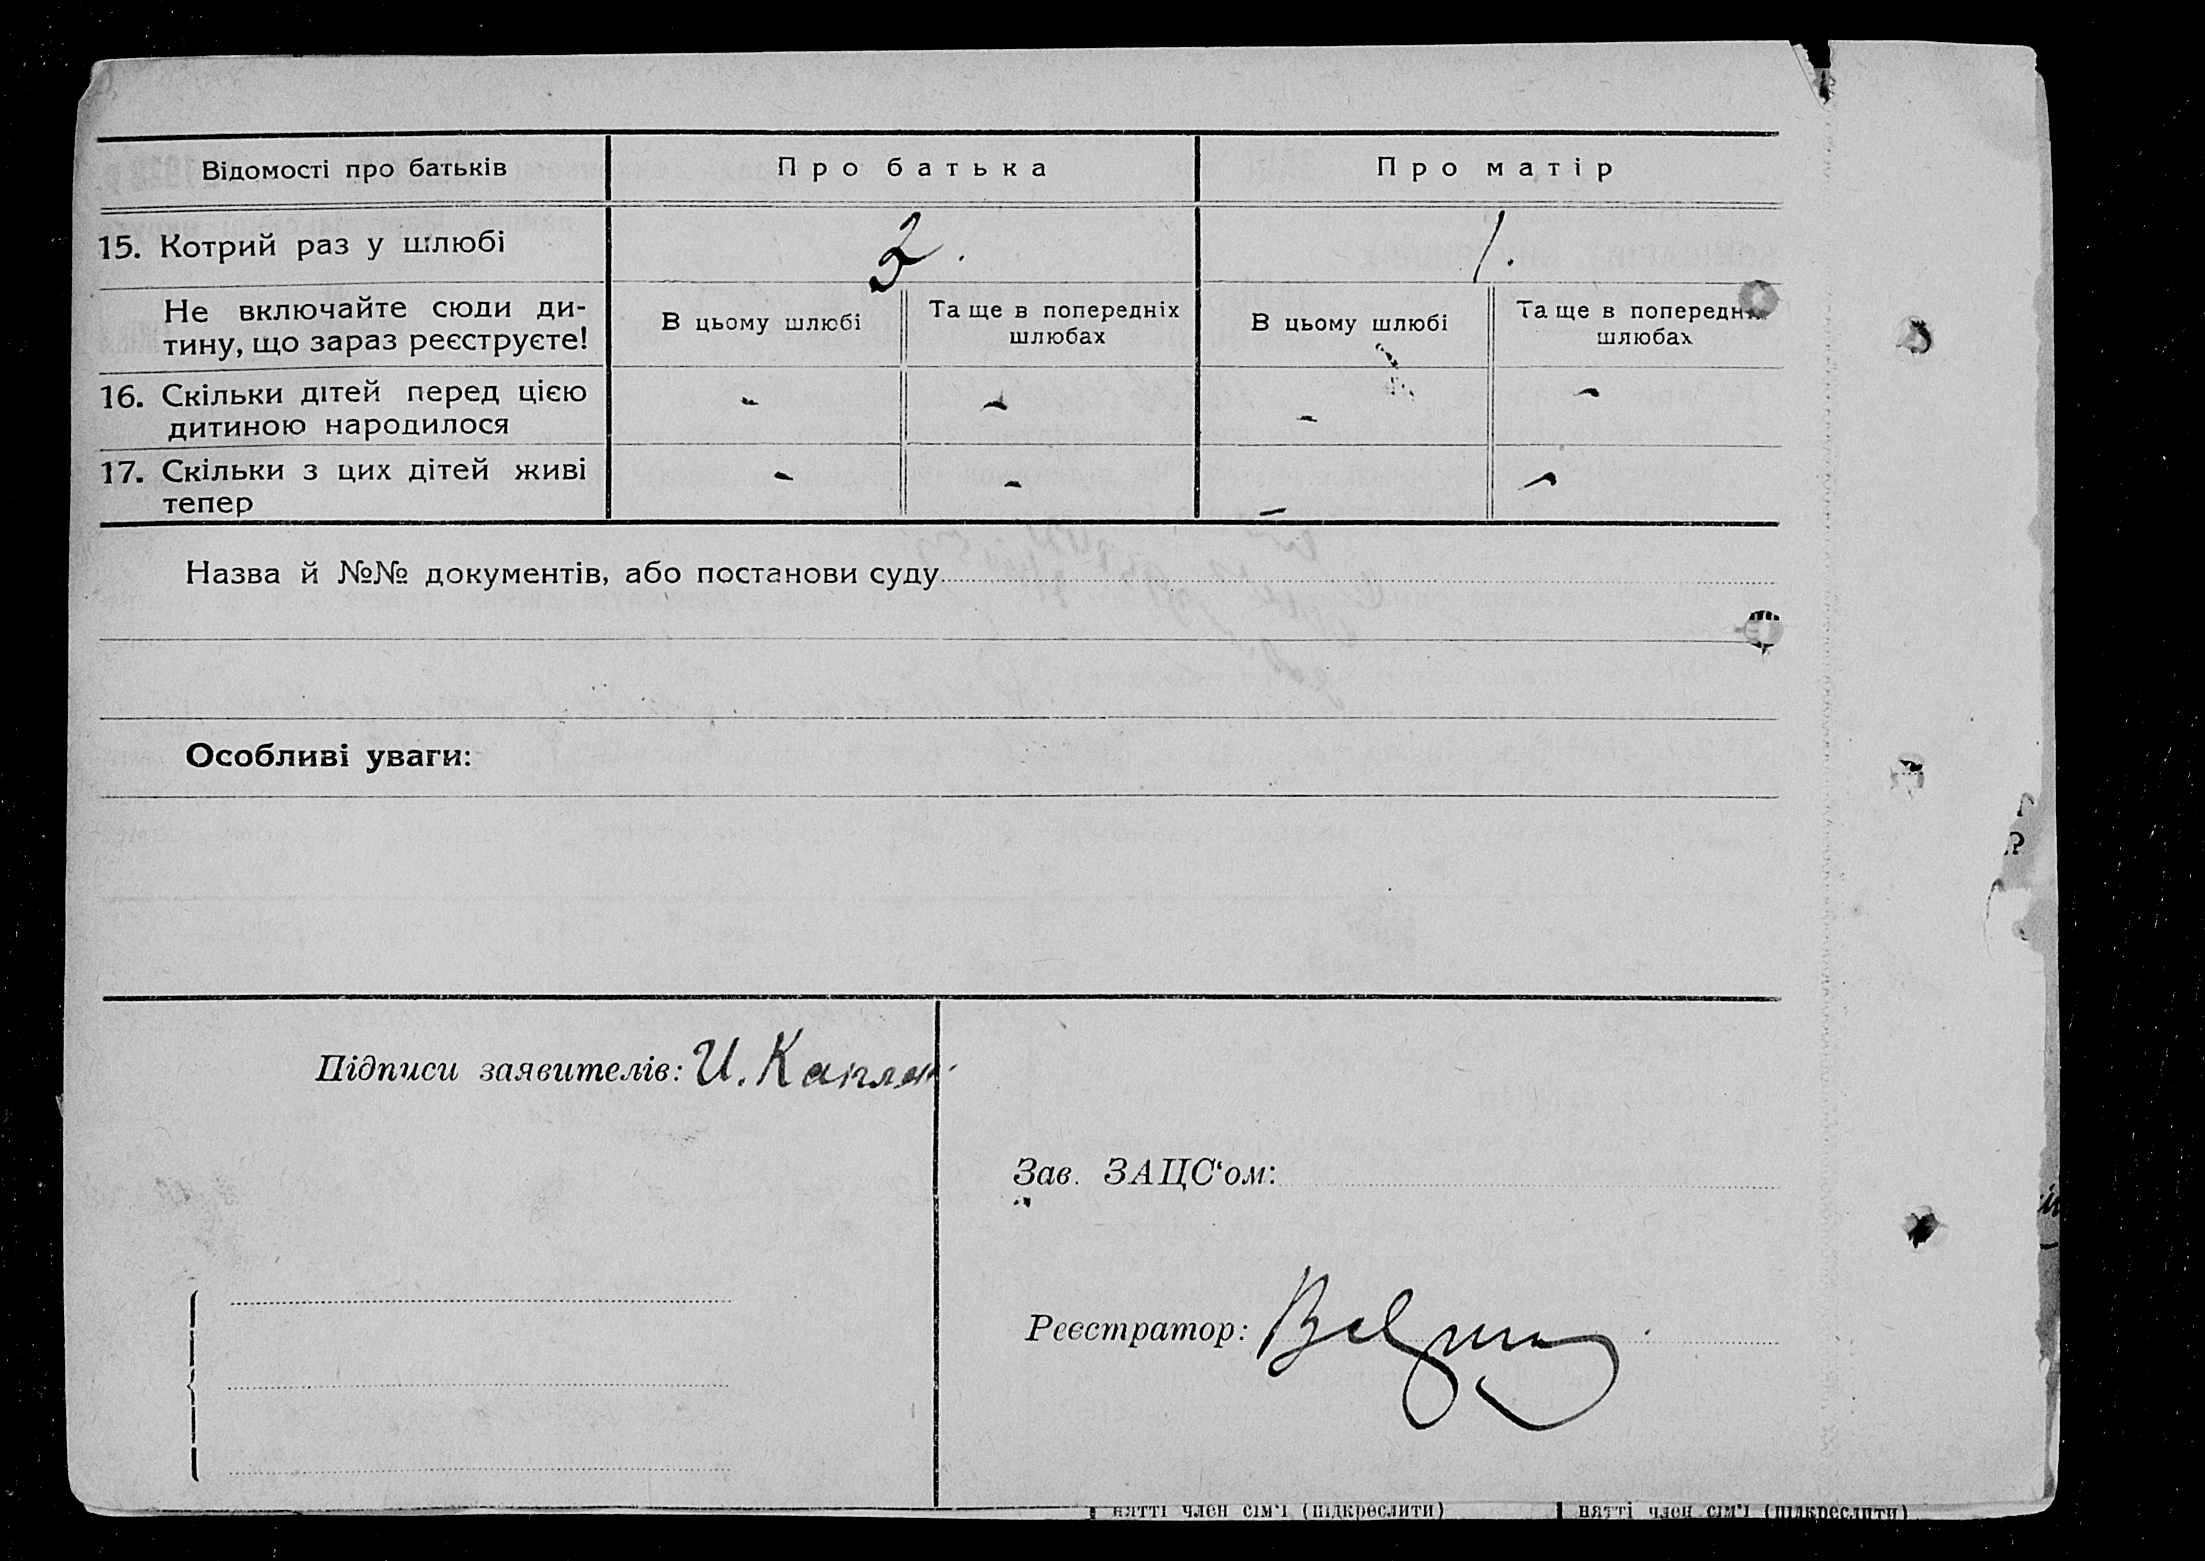 Відомості про батьків Про батька Про матір
15. Котрий раз у шлюбі 2. 1.
Не включайте сюди ди-
тину, що зараз реєструєте!
В цьому шлюбі Та ще в попередніх
шлюбах
В цьому шлюбі Та ще в попередніх
шлюбах
16. Скільки дітей перед цією - - - -
дитиною народилося
17. Скільки з цих дітей живі - - - -
тепер
Назва й №№ документів, або постанови суду
Особливі уваги:
Підписи заявителів: И. Каплан
Зав. ЗАЦС‘ом:
Реєстратор:
нятті член сім'ї (підкреслити) нятті член сім'ї (підкреслити)